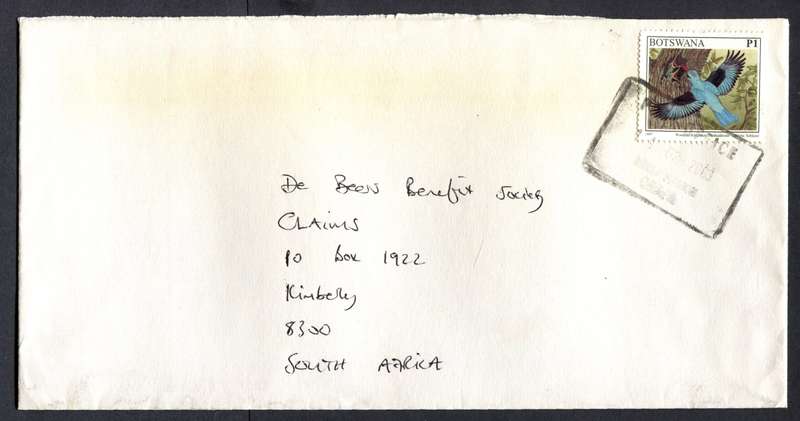 BOTSWANA P1
De Beers Benefit Society
CLAIMS
PO Box 1922
Kimberly
8300
SOUTH AFRICA